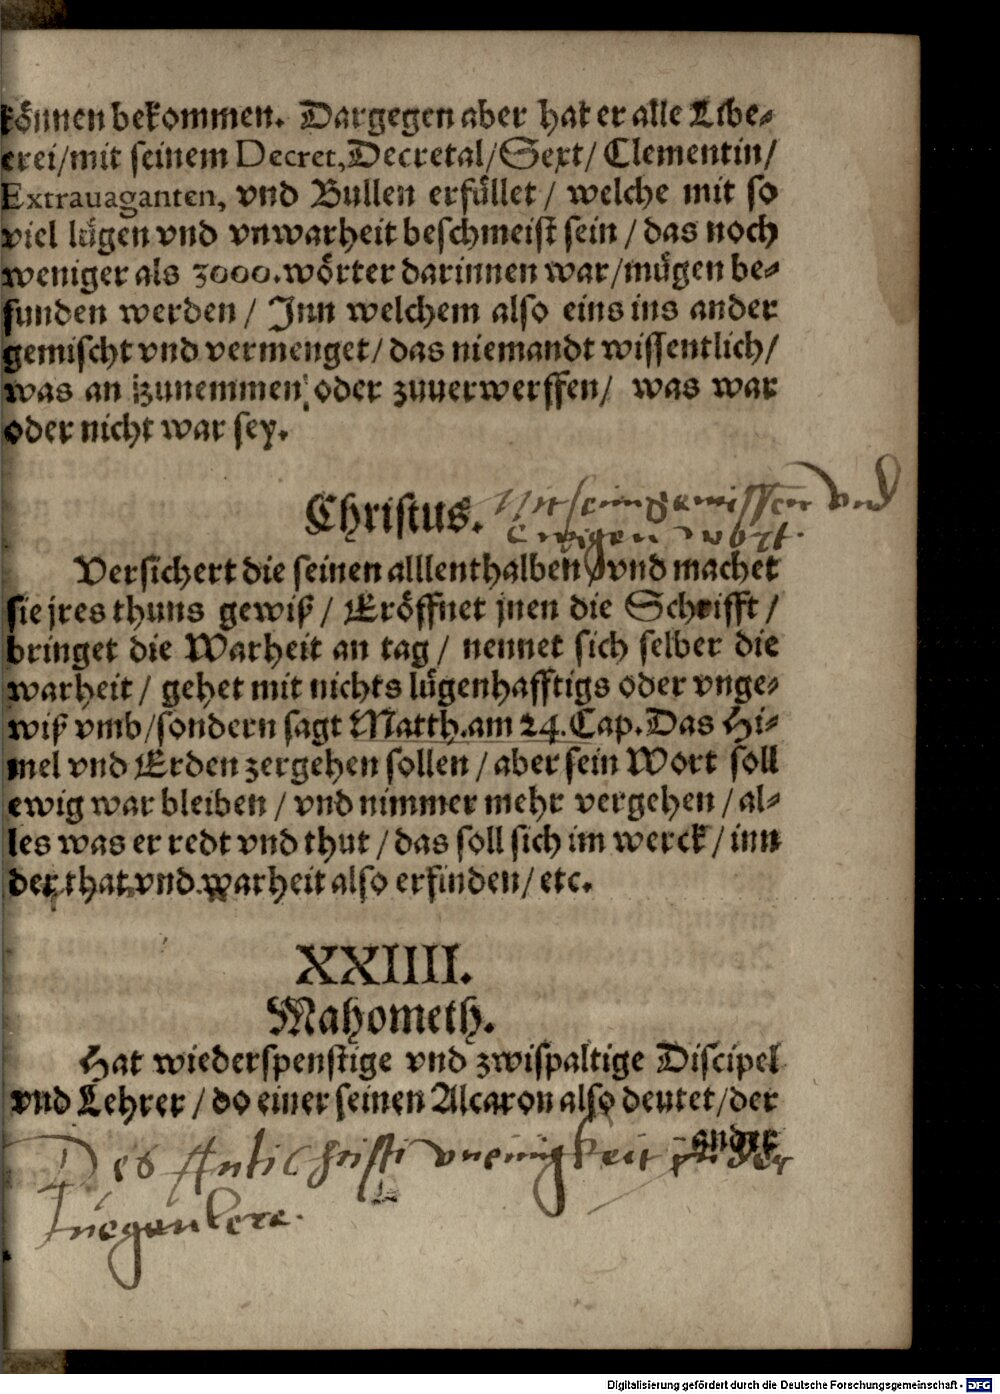 können bekommen. Dargegen aber hat er alle Libe⸗
erei/mit seinem Decret,Decretal/Sext/ Clementin/
Extrauaganten, vnd Bullen erfüllet / welche mit so
viel lügen vnd vnwarheit beschmeist sein / das noch
weniger als 3000. wörter darinnen war/mügen be⸗
funden werden / Inn welchem also eins ins ander
gemischt vnd vermenget/ das niemandt wissentlich/
was an zunemmen oder zuuerwerffen/ was war
oder nicht war sey.
Christus. Mit seim gewissen vnd
Ewigen wort.
Versichert die seinen alllenthalben / vnd machet
sie jres thuns gewiß / Eröffnet jnen die Schrifft /
bringet die Warheit an tag / nennet sich selber die
warheit / gehet mit nichts lügenhafftigs oder vnge⸗
wiß vmb/sondern sagt Matth.am 24. Cap. Das Hi⸗
mel vnd Erden zergehen sollen / aber sein Wort soll
ewig war bleiben / vnd nimmer mehr vergehen / al⸗
les was er redt vnd thut / das soll sich im werck / inn
der that vnd warheit also erfinden/ etc.
XXIIII.
Mahometh.
Hat wiederspenstige vnd zwispaltige Discipel
vnd Lehrer / do einer seinen Alcaron also deutet/der
andre
Des Antichristi vneinigkeit in der
Luegen lere.
Digitalisierung gefördert durch die Deutsche Forschungsgemeinschaft - DFG